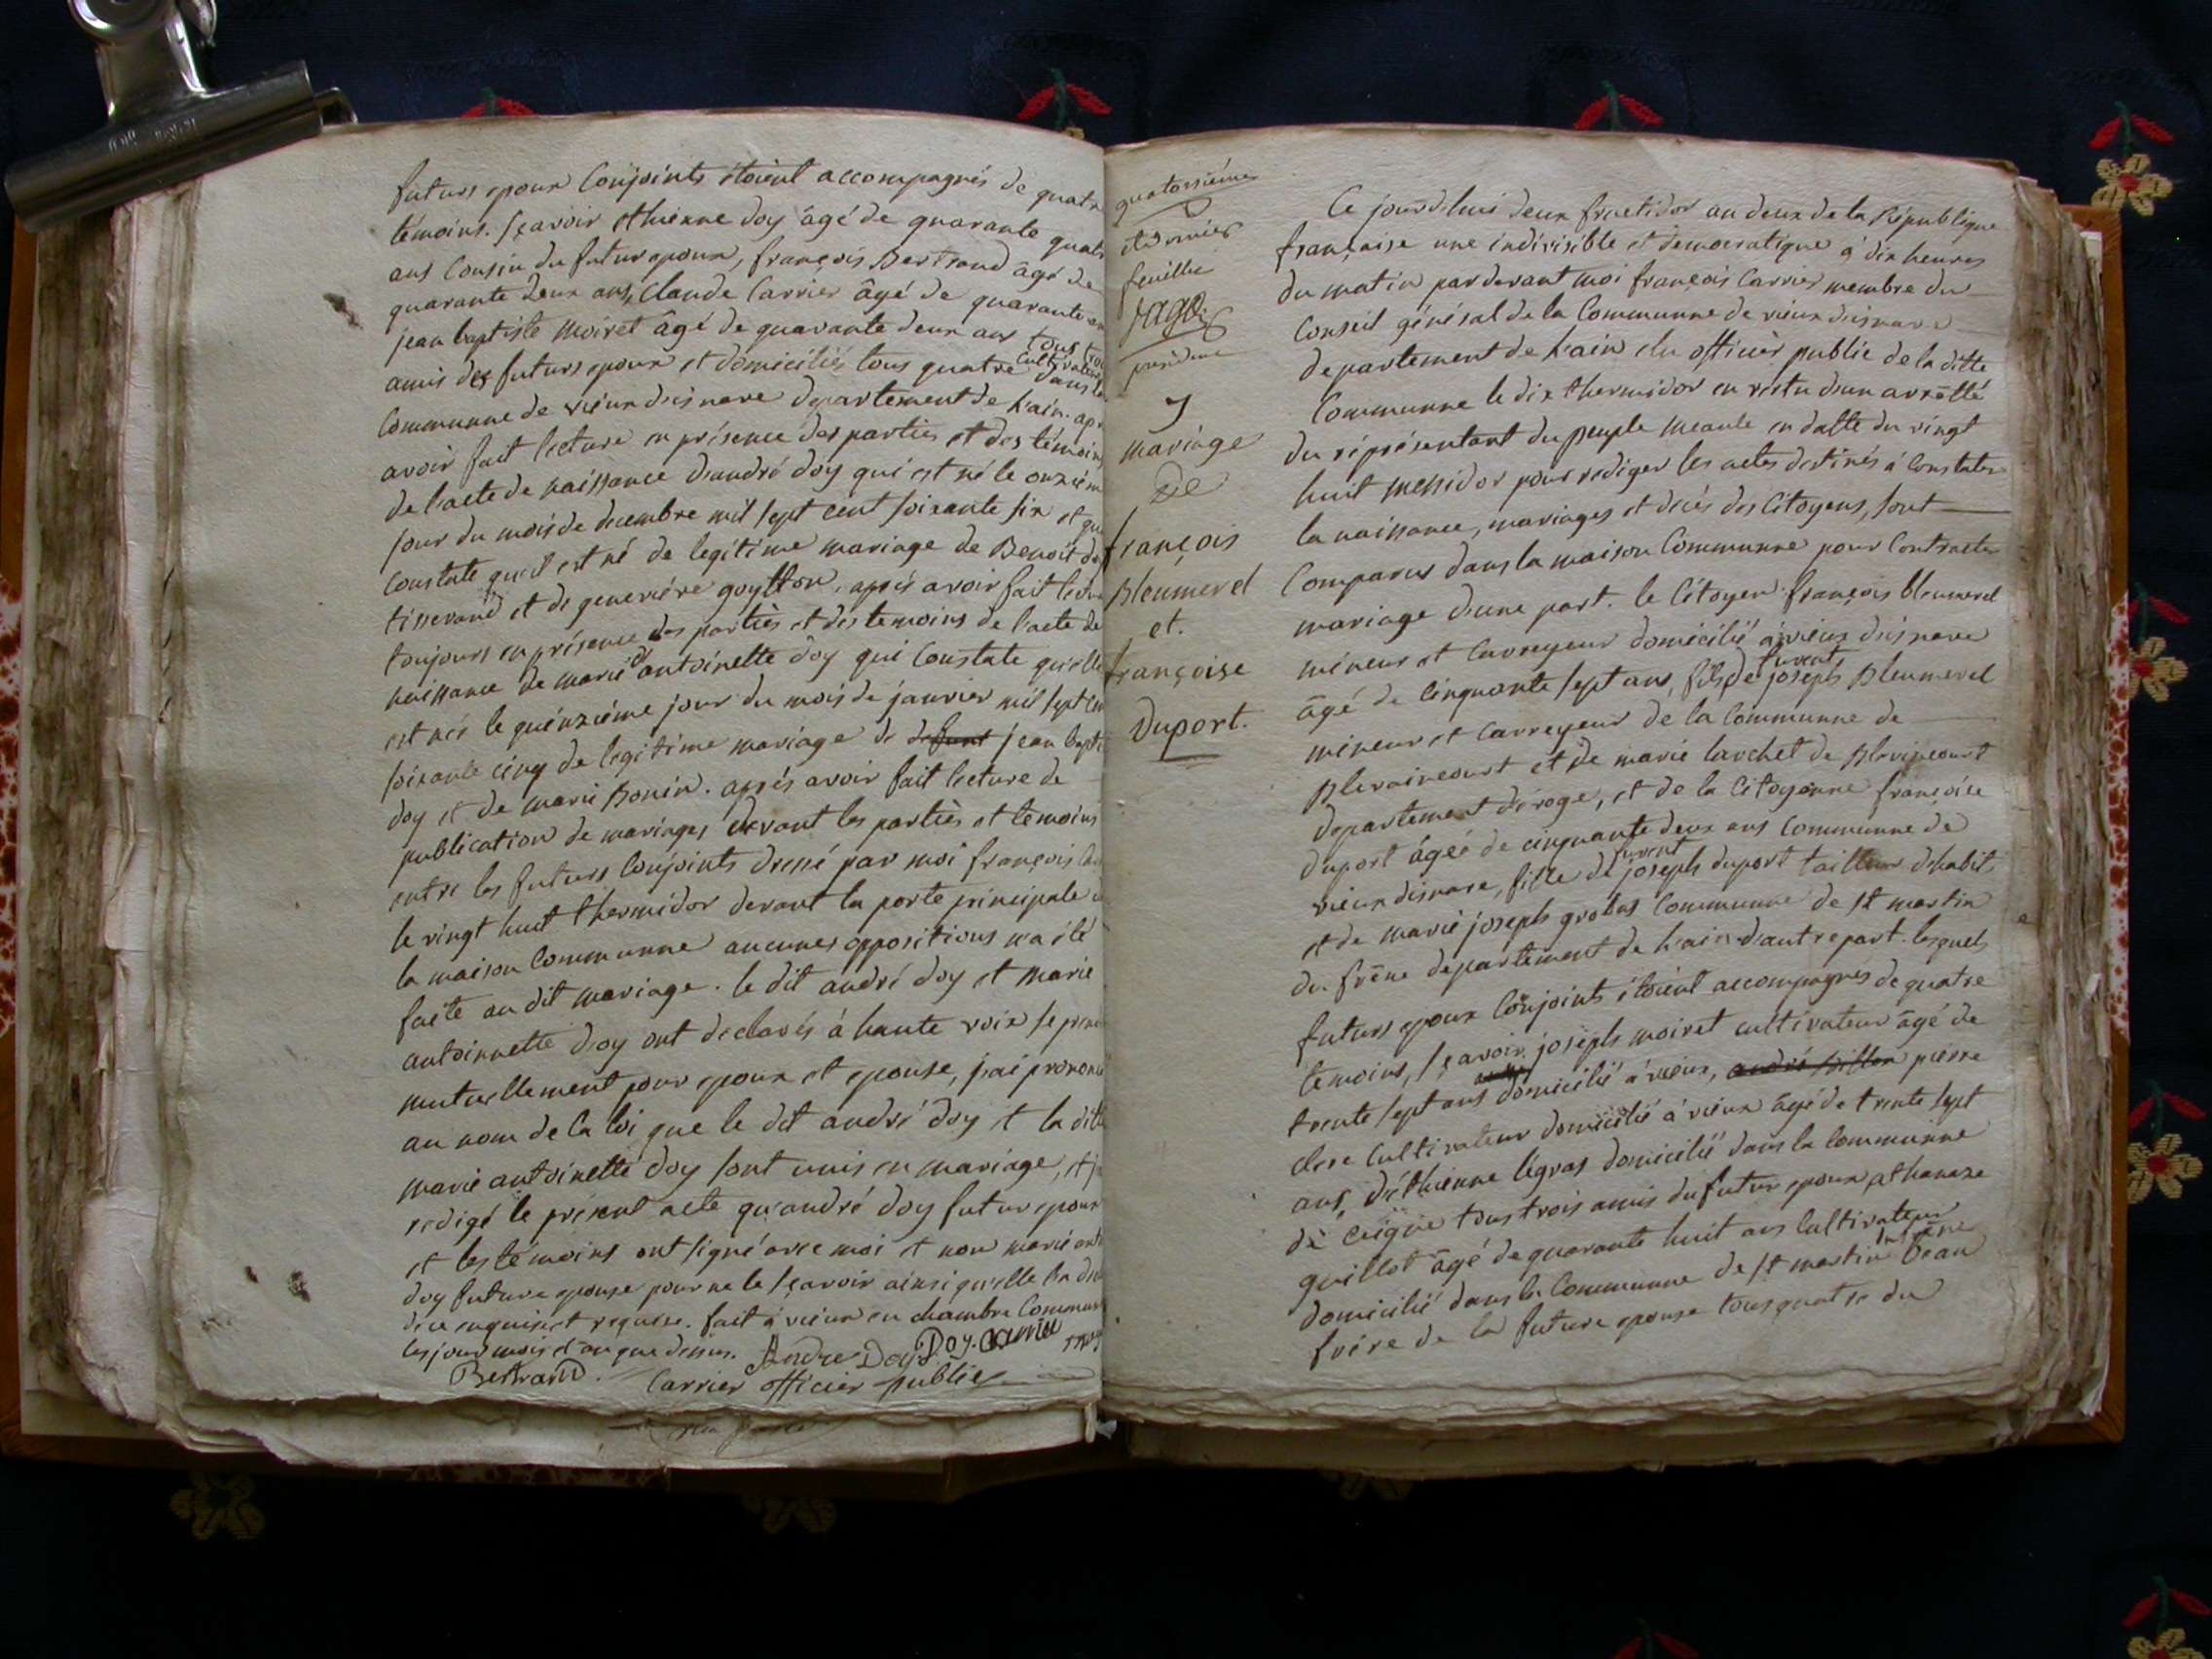 futurs epoux Conjoints étoient accompagnés de quatre
témoins. sçavoir ethienne doy âgé de quarante quatre
ans Cousin du futur epoux, françois Bertrand âgé de
quarante deux ans, Claude Carrier âgé de quarante
jean baptiste moiret âgé de quarante deux ans tous trois
amis des futurs epoux et domiciliés tous quatre Cultivateurs dans la
Communne de vieux disnave departement de hain. apr
avoir fait lecture en présence des parties et des témoins
de l'acte de naissance d'andré doy qui est né le onziém
jour du mois de decembre mil sept cent soixante six et qu
Constate quil est né de legitime mariage de Benoit do
tisserand et de genevieve goytton, appés avoir fait lectur
toujours en présence des parties et des temoins de l'acte de
naissance de marie antoinette doy qui Constate qu'elle
est née le quinziéme jour du mois de janvier mil sept cen
soixante cinq de legitime mariage de defunt jean bapti
doy et de marie Bonin. appés avoir fait lecture de
publication de mariages devant les parties et temoins
entre les futurs Conjoints dressé par moi françois Ca
le vingt huit thermidor devant la porte principale
la maison Communne aucunes oppositions n'a été
faite au dit mariage. le dit andré doy et marie
antoinnette doy ont declarés à haute voix se pren
mutuellement pour epoux et epouse, j'ai prononcé
au nom de la loi que le dit andré doy et la ditte
marie antoinette doy sont unis en mariage, et j'
redigé le présent acte qu'andré doy futur epoux
et les témoins ont signé avec moi et non marie ant
doy future epouse pour ne le sçavoir ainsi quelle l'a
de ce enquise et requise. fait à vieux en chambre Commun
les jour mois et an que dessus. Andre Doy Doy. Carrier
Bertrand. Carrier officier public
quatorziéme
et dernier
feuillet
Jago
president
7
mariage
de
françois
pleumerel
et.
françoise
Duport.
Ce jourd'hui deux fructidor an deux de la République
française une indivisible et democratique à dix heures
du matin pardevant moi françois Carrier membre du
Conseil général de la Communne de vieux disnave
departement de hain elu officier public de la ditte
Communne le dix thermidor en vertu d'un arrêtté
du réprésentant du peuple meaule en datte du vingt
huit messidor pour rediger les actes destinés à Constater
la naissance, mariages et decés des Citoyens, sont
Comparus dans la maison Communne pour Contracter
mariage d'une part. le Citoyen françois bleumerel
mineur et Carreyeur domicilié à vieux disnave
âgé de Cinquante sept ans, fils de furent joseph pleumerel
mineur et Carreyeur de la Communne de
plevaincourt et de marie larchet de plevincourt
departement de voge, et de la Citoyenne françoise
duport âgée de cinquante deux ans Communne de
vieux disnave, fille de furent joseph duport tailleur d'habit,
et de marie joseph grobas Communne de st martin
du frêne departement de hain d'autre part. lesquels
futurs epoux Conjoints étoient accompagnés de quatre
temoins, sçavoir joseph moiret cultivateur âgé de
trente sept ans domicilié à vieux, pierre
clere Cultivateur domicilié à vieux âgé de trente sept
ans, d'éthienne légras domicilié dans la Communne
de ceignie tous trois amis du futur epoux, athanaze
guillot âgé de quarante huit ans Cultivateur
domicilié dans la Communne de st martin du frêne beau
frére de la future epouse tous quatre du